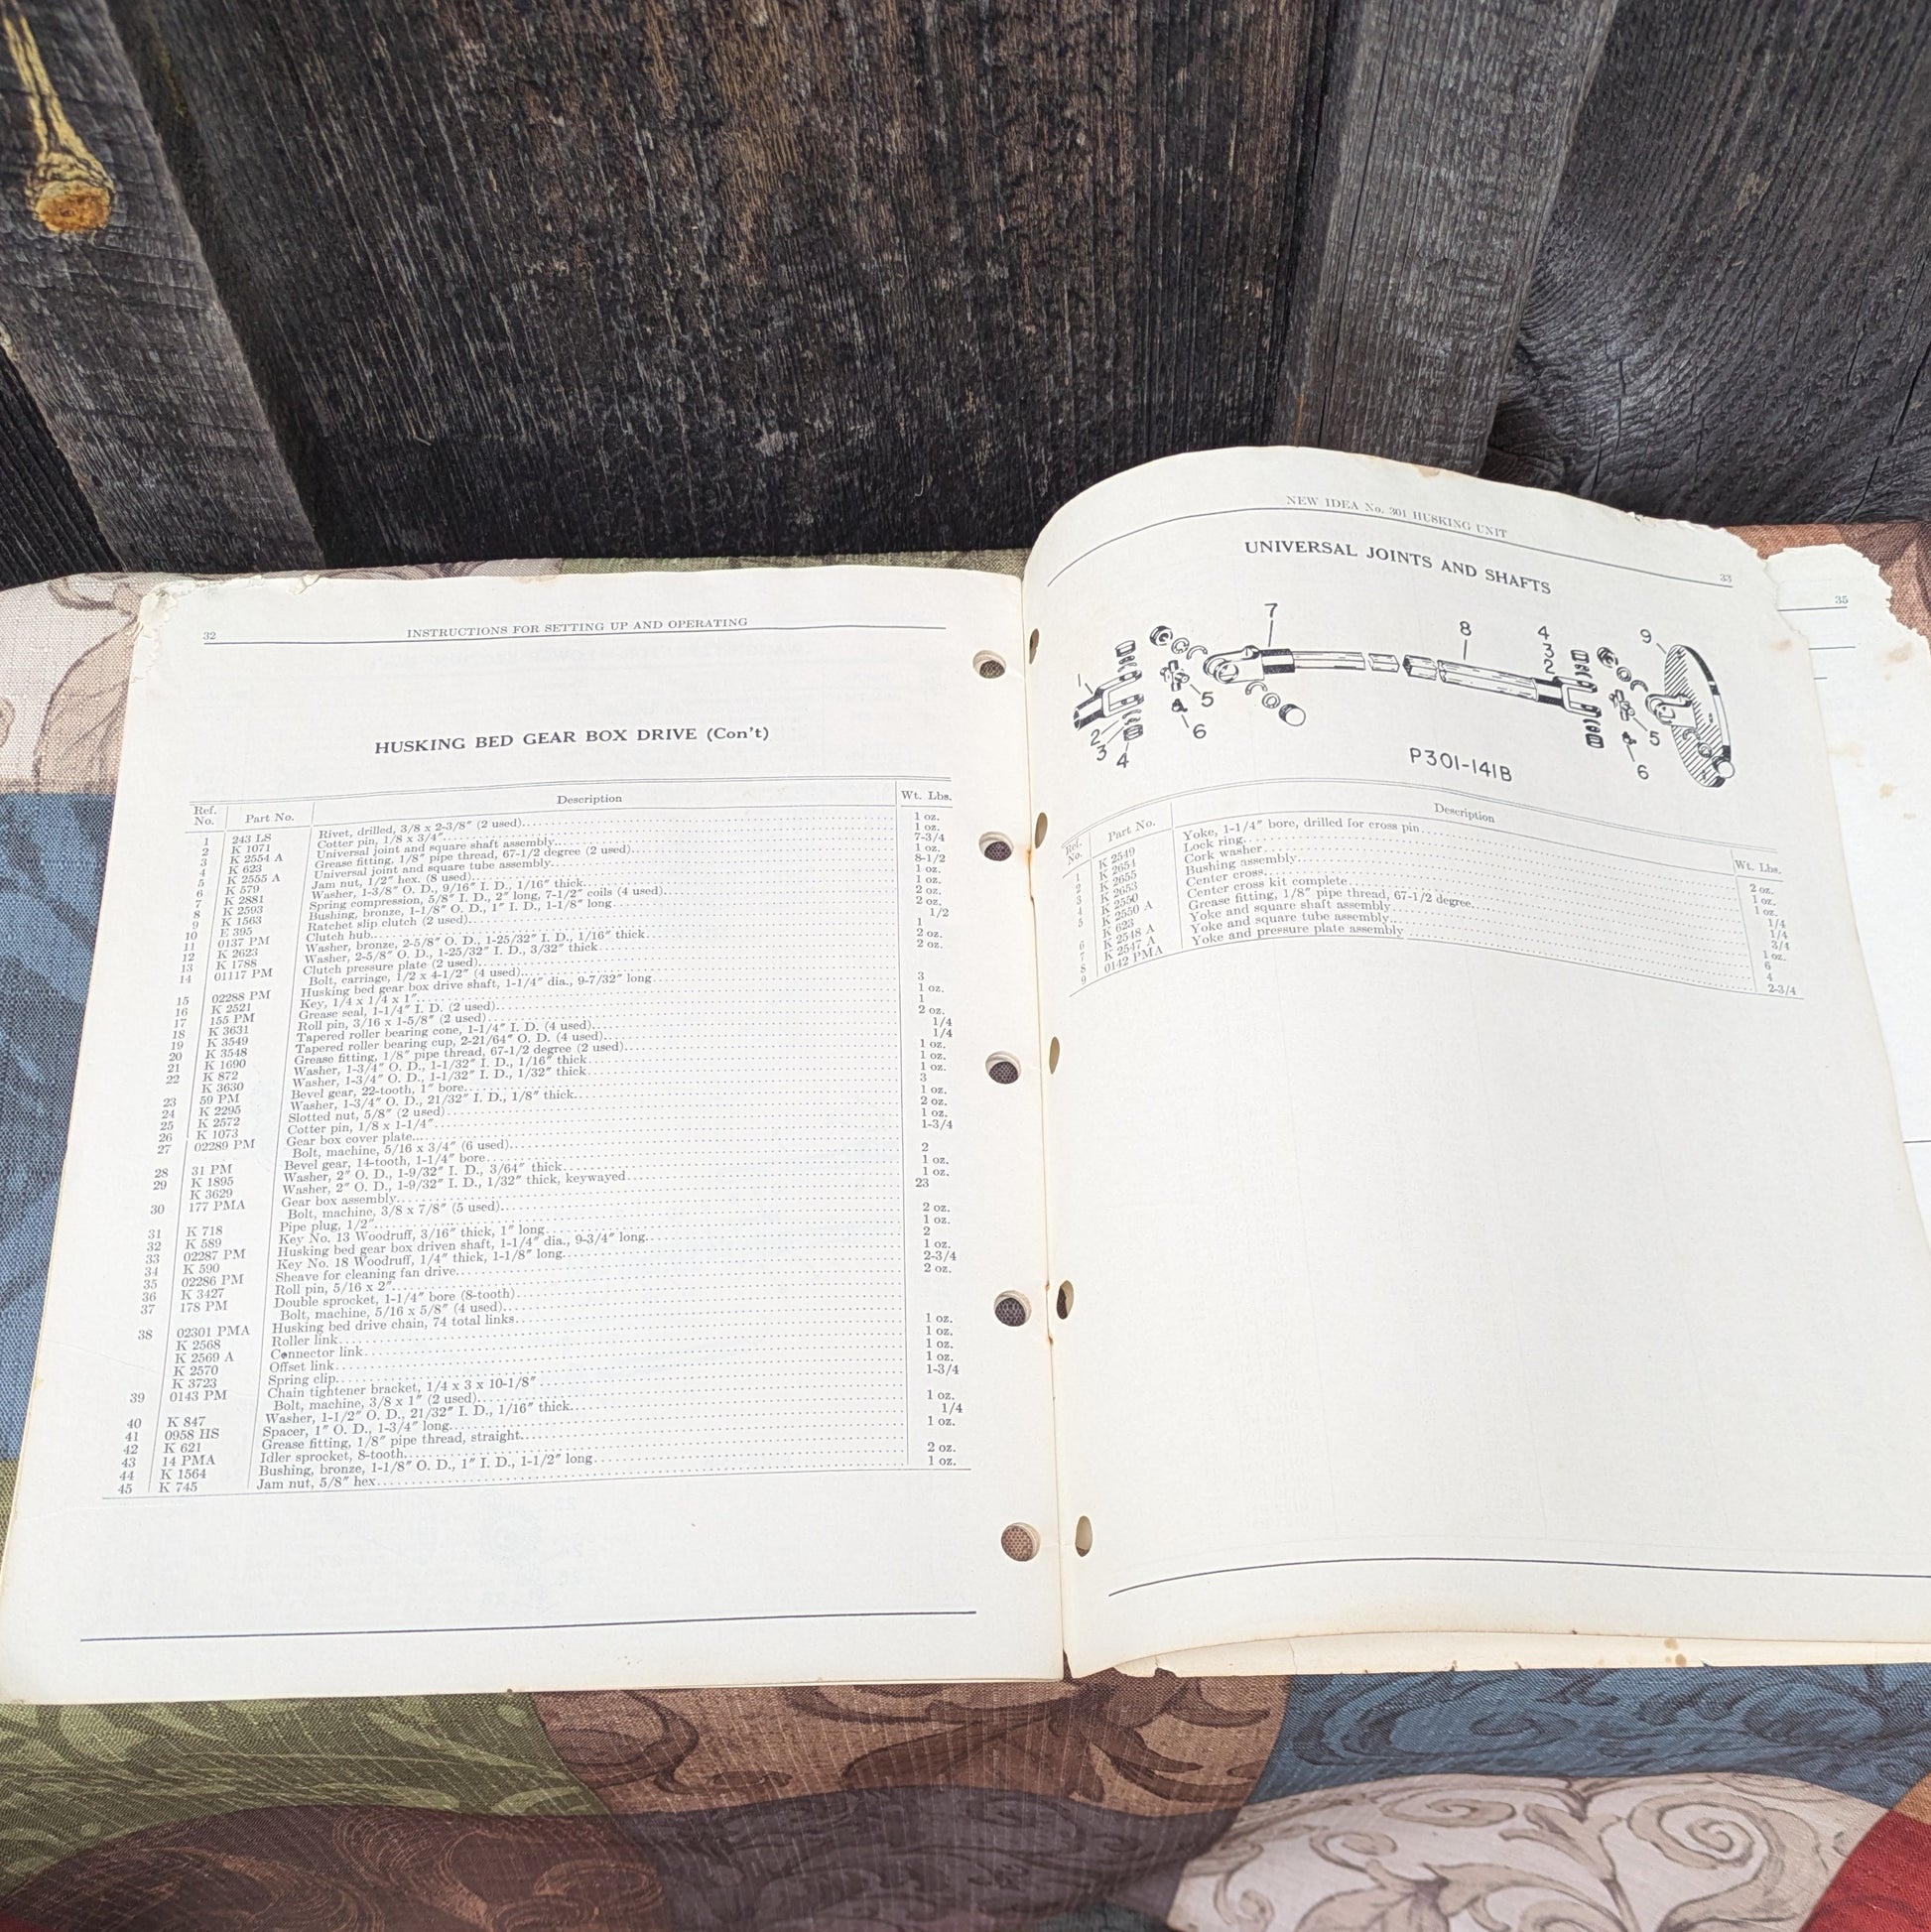 32
INSTRUCTIONS FOR SETTING UP AND OPERATING
HUSKING BED GEAR BOX DRIVE (Con't)
Ref. No. Part No. Description Wt. Lbs.
1 243 LS Rivet, drilled, 3/8 x 2-3/8" (2 used) 1 oz.
2 K 1071 Cotter pin, 1/8 x 3/4" 1 oz.
3 K 2554 A Universal joint and square shaft assembly 7-3/4
4 K 623 Grease fitting, 1/8" pipe thread, 67-1/2 degree (2 used) 1 oz.
5 K 2555 A Universal joint and square tube assembly 8-1/2
6 K 579 Jam nut, 1/2" hex. (8 used) 1 oz.
7 K 2881 Washer, 1-3/8" O. D., 9/16" I. D., 1/16" thick 1 oz.
8 K 2593 Spring compression, 5/8" I. D., 2" long, 7-1/2" coils (4 used) 2 oz.
9 K 1563 Bushing, bronze, 1-1/8" O. D., 1" I. D., 1-1/8" long 2 oz.
10 E 395 Ratchet slip clutch (2 used) 1/2
11 0137 PM Clutch hub 1
12 K 2623 Washer, bronze, 2-5/8" O. D., 1-25/32" I. D., 1/16" thick 2 oz.
13 K 1788 Washer, 2-5/8" O. D., 1-25/32" I. D., 3/32" thick 2 oz.
14 01117 PM Clutch pressure plate (2 used)
Bolt, carriage, 1/2 x 4-1/2" (4 used)
15 02288 PM Husking bed gear box drive shaft, 1-1/4" dia., 9-7/32" long 3
16 K 2521 Key, 1/4 x 1/4 x 1" 1 oz.
17 155 PM Grease seal, 1-1/4" I. D. (2 used) 1
18 K 3631 Roll pin, 3/16 x 1-5/8" (2 used) 2 oz.
19 K 3549 Tapered roller bearing cone, 1-1/4" I. D. (4 used) 1/4
20 K 3548 Tapered roller bearing cup, 2-21/64" O. D. (4 used) 1/4
21 K 1690 Grease fitting, 1/8" pipe thread, 67-1/2 degree (2 used) 1 oz.
22 K 872 Washer, 1-3/4" O. D., 1-1/32" I. D., 1/16" thick 1 oz.
K 3630 Washer, 1-3/4" O. D., 1-1/32" I. D., 1/32" thick 1 oz.
23 59 PM Bevel gear, 22-tooth, 1" bore 3
24 K 2295 Washer, 1-3/4" O. D., 21/32" I. D., 1/8" thick 1 oz.
25 K 2572 Slotted nut, 5/8" (2 used) 2 oz.
26 K 1073 Cotter pin, 1/8 x 1-1/4" 1 oz.
27 02289 PM Gear box cover plate 1-3/4
Bolt, machine, 5/16 x 3/4" (6 used)
28 31 PM Bevel gear, 14-tooth, 1-1/4" bore 2
29 K 1895 Washer, 2" O. D., 1-9/32" I. D., 3/64" thick 1 oz.
K 3629 Washer, 2" O. D., 1-9/32" I. D., 1/32" thick, keywayed 1 oz.
30 177 PMA Gear box assembly 23
Bolt, machine, 3/8 x 7/8" (5 used)
31 K 718 Pipe plug, 1/2" 2 oz.
32 K 589 Key No. 13 Woodruff, 3/16" thick, 1" long 1 oz.
33 02287 PM Husking bed gear box driven shaft, 1-1/4" dia., 9-3/4" long 2
34 K 590 Key No. 18 Woodruff, 1/4" thick, 1-1/8" long 1 oz.
35 02286 PM Sheave for cleaning fan drive 2-3/4
36 K 3427 Roll pin, 5/16 x 2" 2 oz.
37 178 PM Double sprocket, 1-1/4" bore (8-tooth)
Bolt, machine, 5/16 x 5/8" (4 used)
38 02301 PMA Husking bed drive chain, 74 total links
K 2568 Roller link 1 oz.
K 2569 A Connector link 1 oz.
K 2570 Offset link 1 oz.
K 3723 Spring clip 1 oz.
39 0143 PM Chain tightener bracket, 1/4 x 3 x 10-1/8" 1-3/4
Bolt, machine, 3/8 x 1" (2 used)
40 K 847 Washer, 1-1/2" O. D., 21/32" I. D., 1/16" thick 1 oz.
41 0958 HS Spacer, 1" O. D., 1-3/4" long 1/4
42 K 621 Grease fitting, 1/8" pipe thread, straight 1 oz.
43 14 PMA Idler sprocket, 8-tooth
44 K 1564 Bushing, bronze, 1-1/8" O. D., 1" I. D., 1-1/2" long 2 oz.
45 K 745 Jam nut, 5/8" hex 1 oz.
NEW IDEA No. 301 HUSKING UNIT
33
UNIVERSAL JOINTS AND SHAFTS
7 8 4 9
3
2
1
5
2 6 5
3
4 6
P301-141B
Ref. No. Part No. Description Wt. Lbs.
1 K 2549 Yoke, 1-1/4" bore, drilled for cross pin 2 oz.
2 K 2654 Lock ring 1 oz.
3 K 2655 Cork washer 1 oz.
4 K 2653 Bushing assembly 1/4
5 K 2550 Center cross 1/4
K 2550 A Center cross kit complete 3/4
6 K 623 Grease fitting, 1/8" pipe thread, 67-1/2 degree 1 oz.
7 K 2548 A Yoke and square shaft assembly 6
8 K 2547 A Yoke and square tube assembly 4
9 0142 PMA Yoke and pressure plate assembly 2-3/4
35